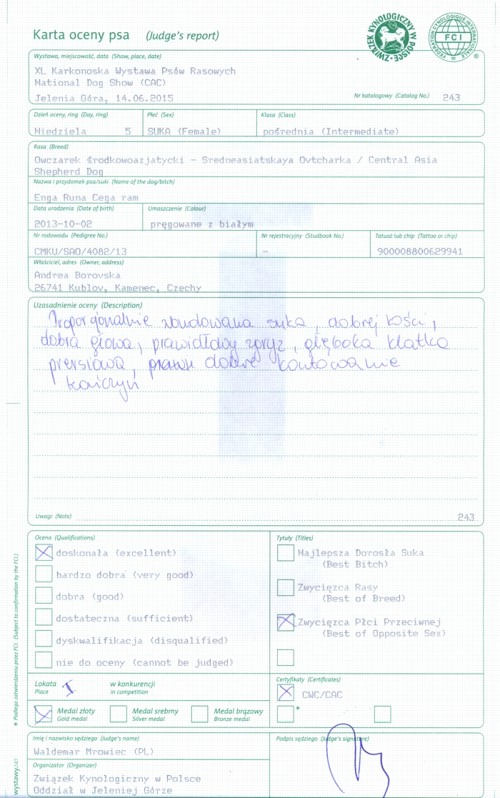 Karta oceny psa (Judge's report)
ZWIĄZEK KYNOLOGICZNY W POLSCE
FCI
Wystawa, miejscowość, data (Show, place, date)
XL Karkonoska Wystawa Psów Rasowych
National Dog Show (CAC)
Jelenia Góra, 14.06.2015
Nr katalogowy (Catalog No.) 243
Dzień oceny, ring (Day, ring) Płeć (Sex) Klasa (Class)
Niedziela 5 SUKA (Female) pośrednia (Intermediate)
Rasa (Breed)
Owczarek środkowoazjatycki - Sredneasiatskaya Ovtcharka / Central Asia
Shepherd Dog
Nazwa i przydomek psa/suki (Name of the dog/bitch)
Enga Runa Cega ram
Data urodzenia (Date of birth) Umaszczenie (Colour)
2013-10-02 pręgowane z białym
Nr rodowodu (Pedigree No.) Nr rejestracyjny (Studbook No.) Tatuaż lub chip (Tattoo or chip)
CMKU/SAO/4082/13 - 900008800629941
Właściciel, adres (Owner, address)
Andrea Borovska
26741 Kublov, Kamenec, Czechy
Uzasadnienie oceny (Description)
Proporcjonalnie zbudowana suka, dobrej kości,
dobra głowa, prawidłowy zgryz, głęboka klatka
piersiowa, dobre kątowanie
kończyn
Uwagi (Note) 243
Ocena (Qualifications) Tytuły (Titles)
doskonała (excellent) Najlepsza Dorosła Suka
(Best Bitch)
bardzo dobra (very good)
Zwycięzca Rasy
(Best of Breed)
dobra (good)
dostateczna (sufficient) Zwycięzca Płci Przeciwnej
(Best of Opposite Sex)
dyskwalifikacja (disqualified)
nie do oceny (cannot be judged)
Lokata I w konkurencji Certyfikaty (Certificates)
Place in competition CWC/CAC
Medal złoty Medal srebrny Medal brązowy *
Gold medal Silver medal Bronze medal
* Podlega zatwierdzeniu przez FCI (Subject to confirmation by the FCI)
Imię i nazwisko sędziego (Judge's name) Podpis sędziego (Judge's signature)
Waldemar Mrowiec (PL)
Organizator (Organizer)
Związek Kynologiczny w Polsce
Oddział w Jeleniej Górze